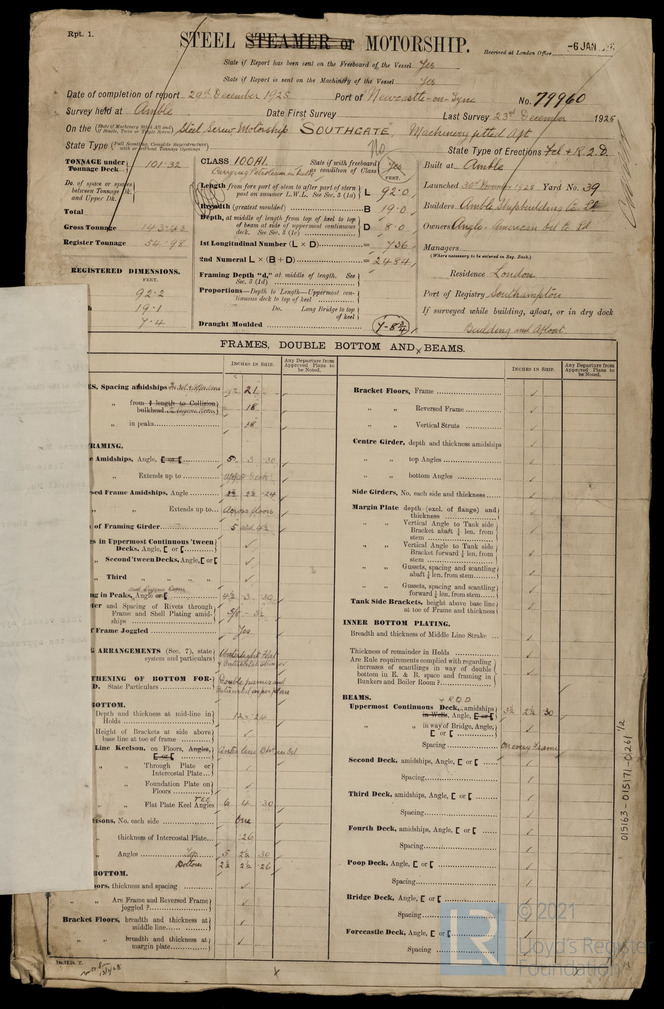 Rpt. 1.
STEEL STEAMER or MOTORSHIP.
Received at London Office -6 JAN
State if Report has been sent on the Freeboard of the Vessel Yes
State if Report is sent on the Machinery of the Vessel Yes
Date of completion of report 29th December 1925 Port of Newcastle-on-Tyne No. 79960
Survey held at Amble Date First Survey Last Survey 23rd December 1925
On the Steel Screw Motorship SOUTHGATE, Machinery fitted Aft
State Type No State Type of Erections
TONNAGE under Tonnage Deck 101.32
Do. of space or spaces between Tonnage Dk. and Upper Dk.
Total
Gross Tonnage 143.43
Register Tonnage 54.98
REGISTERED DIMENSIONS.
FEET.
92.2
19.1
7.4
CLASS 100A1. State if with freeboard as condition of Class Yes
Carrying Petroleum in bulk
FEET.
Length from fore part of stem to after part of stern post on summer L.W.L. See Sec. 3 (1a) L 92.0
Breadth (greatest moulded) B 19.0
Depth, at middle of length from top of keel to top of beam at side of uppermost continuous deck. See Sec. 3 (1c) D 8.0
1st Longitudinal Number (L × D) = 736
2nd Numeral L × (B + D) = 2484
Framing Depth "d," at middle of length. See Sec. 3 (1d)
Proportions—Depth to Length—Uppermost continuous deck to top of keel
Do. Long Bridge to top of keel
Draught Moulded 7-8¾
Built at Amble
Launched 30th November 1925 Yard No. 39
Builders Amble Shipbuilding Co Ld
Owners Anglo-American Oil Co Ld
Managers
(Where necessary to be entered in Reg. Book)
Residence London
Port of Registry Southampton
If surveyed while building, afloat, or in dry dock
Building and Afloat
FRAMES, DOUBLE BOTTOM AND BEAMS.
INCHES IN SHIP.
Any Departure from Approved Plans to be Noted.
INCHES IN SHIP.
Any Departure from Approved Plans to be Noted.
ES, Spacing amidships 21
„ from ⅕ length to Collision bulkhead In Engine Room 18
„ in peaks 18
RAMING.
e Amidships, Angle, [ or [ 5 3 .30
„ Extends up to upper deck
sed Frame Amidships, Angle 2½ 2½ .24
„ Extends up to Across floors
of Framing Girder
es in Uppermost Continuous 'tween Decks, Angle, [ or [
„ Second 'tween Decks, Angle, [ or [
„ Third „ „ „
and Engine Room
ng in Peaks, Angle or [ 4½ 3 .30
ter and Spacing of Rivets through Frame and Shell Plating amidships
f Frame Joggled Yes
G ARRANGEMENTS (Sec. 7), state system and particulars
THENING OF BOTTOM FOR-
D. State Particulars
BOTTOM.
Depth and thickness at mid-line in Holds 12 × .24
Height of Brackets at side above base line at toe of frame
Line Keelson, on Floors, Angles, [ or [
„ Through Plate or Intercostal Plate
„ Foundation Plate on Floors
„ Flat Plate Keel Angles 6 4 .30
lsons, No. each side One
„ thickness of Intercostal Plate .26
„ Angles Top 5 2½ .30
Bottom 2½ 2½ .26
BOTTOM.
ors, thickness and spacing
„ Are Frame and Reversed Frame joggled?
Bracket Floors, breadth and thickness at middle line
„ „ breadth and thickness at margin plate
Bracket Floors, Frame
„ „ Reversed Frame
„ „ Vertical Struts
Centre Girder, depth and thickness amidships
„ „ top Angles
„ „ bottom Angles
Side Girders, No. each side and thickness
Margin Plate depth (excl. of flange) and thickness
„ „ Vertical Angle to Tank side Bracket abaft ¼ len. from stem
„ „ Vertical Angle to Tank side Bracket forward ¼ len. from stem
„ „ Gussets, spacing and scantling abaft ¼ len. from stem
„ „ Gussets, spacing and scantling forward ¼ len. from stem
Tank Side Brackets, height above base line at toe of Frame and thickness
INNER BOTTOM PLATING.
Breadth and thickness of Middle Line Strake
Thickness of remainder in Holds
Are Rule requirements complied with regarding increases of scantlings in way of double bottom in E. & B. space and framing in Bunkers and Boiler Room?
BEAMS. + R.Q.D.
Uppermost Continuous Deck, amidships in Wells, Angle, [ or [ 3½ 2½ .30
„ „ in way of Bridge, Angle, [ or [
Spacing On every Frame
Second Deck, amidships, Angle, [ or [
Spacing
Third Deck, amidships, Angle, [ or [
Spacing
Fourth Deck, amidships, Angle, [ or [
Spacing
Poop Deck, Angle, [ or [
Spacing
Bridge Deck, Angle, [ or [
Spacing
Forecastle Deck, Angle, [ or [
Spacing
015163-015171-01261 1/2
LR
© 2021
Lloyd's Register
Foundation